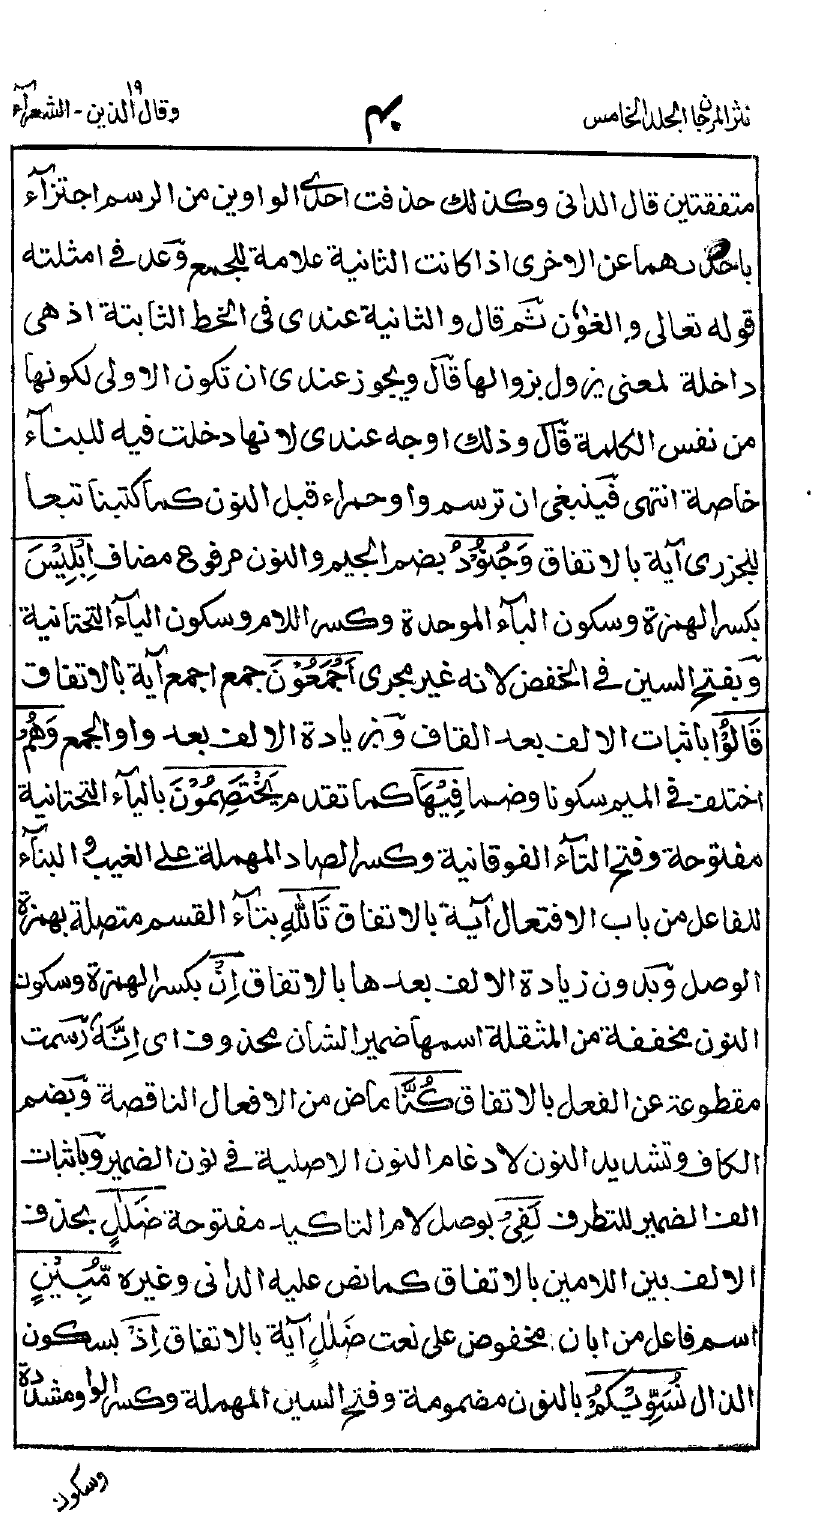 نثر المرجان المجلد الخامس
٤٠
وقال الذين ١٩ - الشعرآء
متفقتين قال الدانى وكذلك حذفت احدى الواوين من الرسم اجتزآء
باحدىهما عن الاخرى اذا كانت الثانية علامة للجمع وعد فى امثلته
قوله تعالى والغوٗن ثم قال والثانية عندى فى الخط الثابتة اذ هى
داخلة لمعنى يزول بزوالها قال ويجوز عندى ان تكون الاولى لكونها
من نفس الكلمة قال وذلك اوجه عندى لانها دخلت فيه للبنآء
خاصة انتهى فينبغى ان ترسم واو حمراء قبل النون كما كتبنا تبعا
للجزرى آية بالاتفاق وَجُنُوْدُ بضم الجيم والنون مرفوع مضاف اِبْلِيْسَ
بكسر الهمزة وسكون البآء الموحدة وكسر اللام وسكون اليآء التحتانية
وبفتح السين فى الخفض لانه غير مجرى اَجْمَعُوْنَ جمع اجمع آية بالاتفاق
قَالُوْا باثبات الالف بعد القاف وبزيادة الالف بعد واو الجمع وَهُمْ
اختلف فى الميم سكونا وضما فِيْهَا كما تقدم يَخْتَصِمُوْنَ باليآء التحتانية
مفتوحة وفتح التآء الفوقانية وكسر الصاد المهملة على الغيب والبنآء
للفاعل من باب الافتعال آية بالاتفاق تَاللّٰهِ بتآء القسم متصلة بهمزة
الوصل وبدون زيادة الالف بعدها بالاتفاق اِنْ بكسر الهمزة وسكون
النون مخففة من المثقلة اسمها ضمير الشان محذوف اى اِنَّهٗ رسمت
مقطوعة عن الفعل بالاتفاق كُنَّا ماض من الافعال الناقصة وبضم
الكاف وتشديد النون لادغام النون الاصلية فى نون الضمير وباثبات
الف الضمير للتطرف لَفِىْ بوصل لام التاكيد مفتوحة ضَلٰلٍ بحذف
الالف بين اللامين بالاتفاق كما نص عليه الدانى وغيره مُّبِيْنٍ
اسم فاعل من ابان مخفوض على نعت ضَلٰلٍ آية بالاتفاق اِذْ بسكون
الذال نُسَوِّيْكُمْ بالنون مضمومة وفتح السين المهملة وكسر الواو مشددة
وسكون